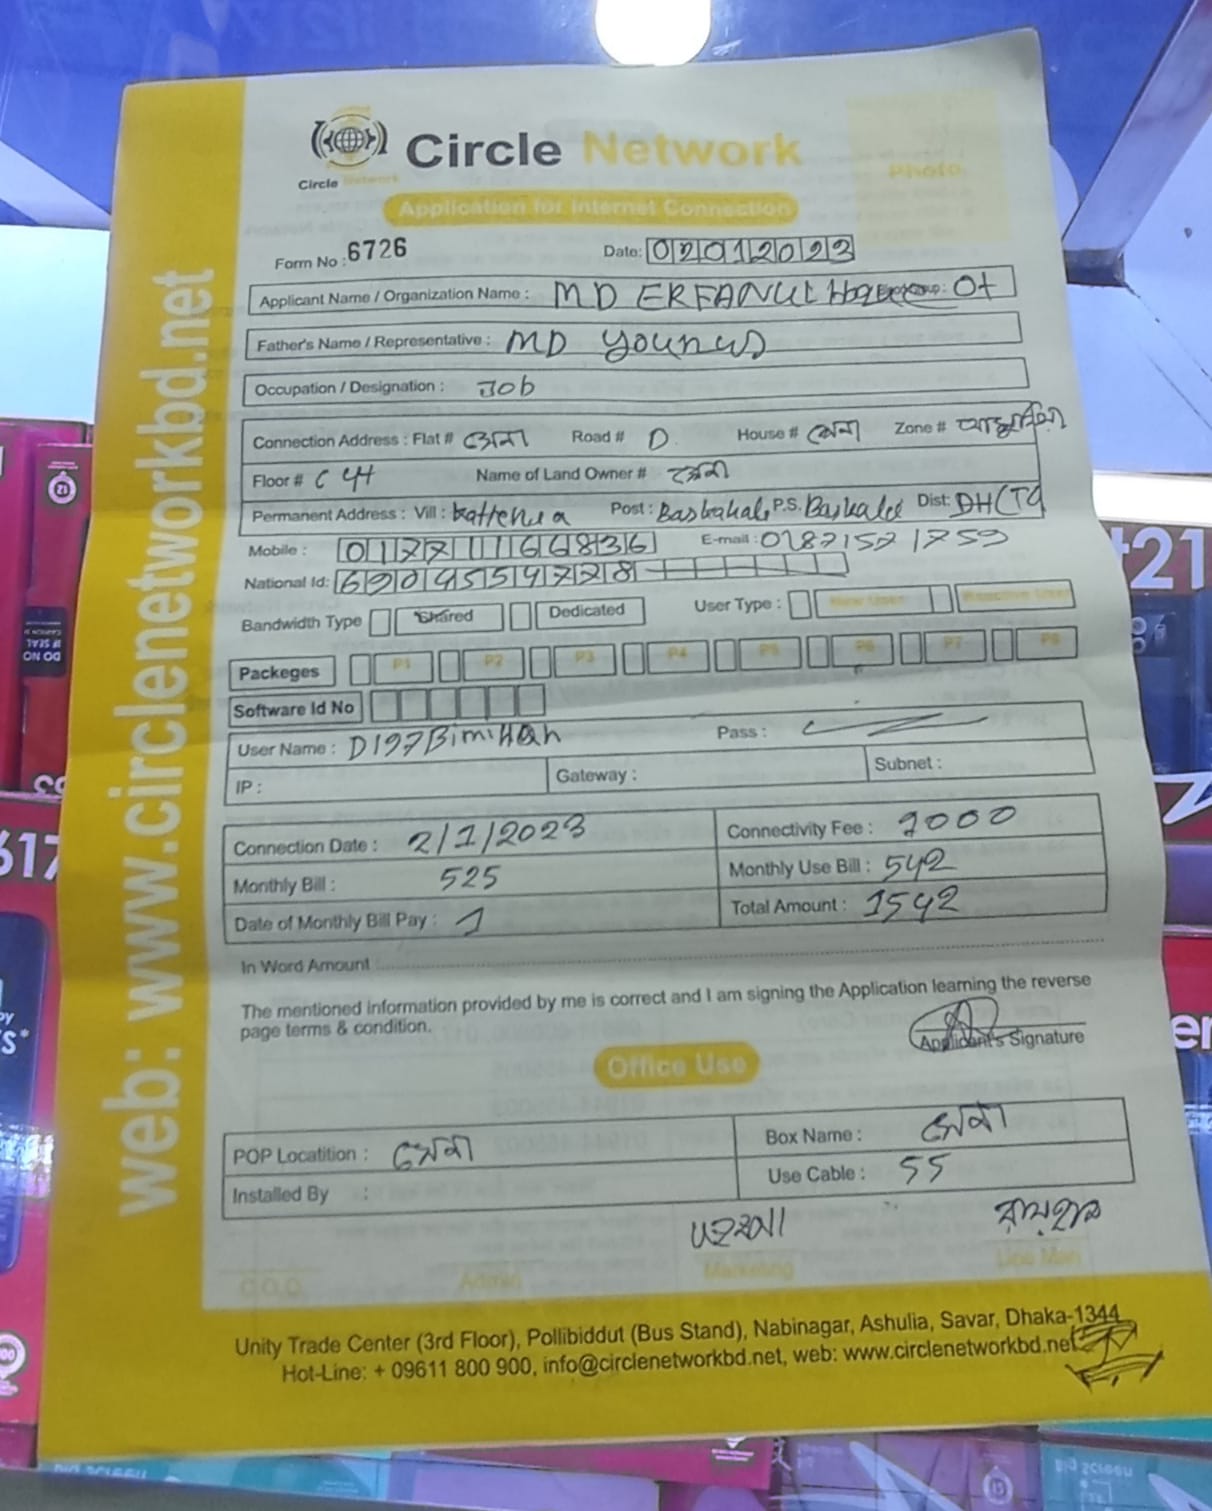 Circle Network
Circle Network
Photo
Application for Internet Connection
Form No : 6726 Date: 02012023
Applicant Name / Organization Name : MD ERFANUL Hoque O+
Father's Name / Representative : MD Younus
Occupation / Designation : Job
Connection Address : Flat # Road # D House # Zone #
Floor # Name of Land Owner #
Permanent Address : Vill : Post : P.S. Dist: CTG
Mobile : 01771166836 E-mail : 01871521759
National Id: 6904554728
Bandwidth Type Shared Dedicated User Type :
Packeges P1 P2 P3 P4 P5 P6 P7 P8
Software Id No
User Name : Pass :
IP : Gateway : Subnet :
Connection Date : 2/1/2023 Connectivity Fee : 1000
Monthly Bill : 525 Monthly Use Bill : 542
Date of Monthly Bill Pay : 1 Total Amount : 1542
In Word Amount :
The mentioned information provided by me is correct and I am signing the Application learning the reverse
page terms & condition.
Applicant's Signature
Office Use
POP Locatition : Box Name :
Installed By : Use Cable : 55
C.O.O. Admin Marketing Line Man
Unity Trade Center (3rd Floor), Pollibiddut (Bus Stand), Nabinagar, Ashulia, Savar, Dhaka-1344
Hot-Line: + 09611 800 900, info@circlenetworkbd.net, web: www.circlenetworkbd.net
web: www.circlenetworkbd.net